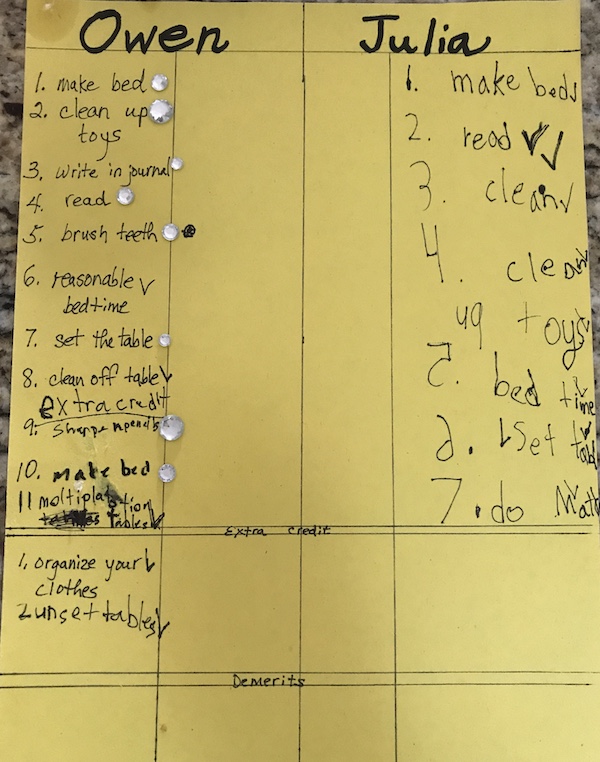 Owen
1. make bed
2. clean up
toys
3. write in journal
4. read
5. brush teeth
6. reasonable
bedtime
7. set the table
8. clean off table
extra credit
9.
10. make bed
11 moltiplation
tables
Julia
1. make beds
2. read
3. clean
4. clean
up toys
5. bed time
6. Set table
7. do Math
Extra credit
1. organize your
clothes
2 unset tables
Demerits